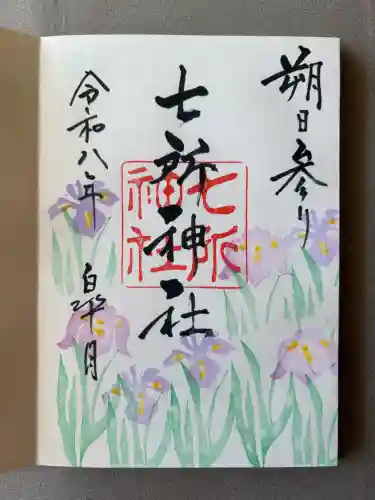 朔日参り
七所神社
七所
神社
令和八年
皐月